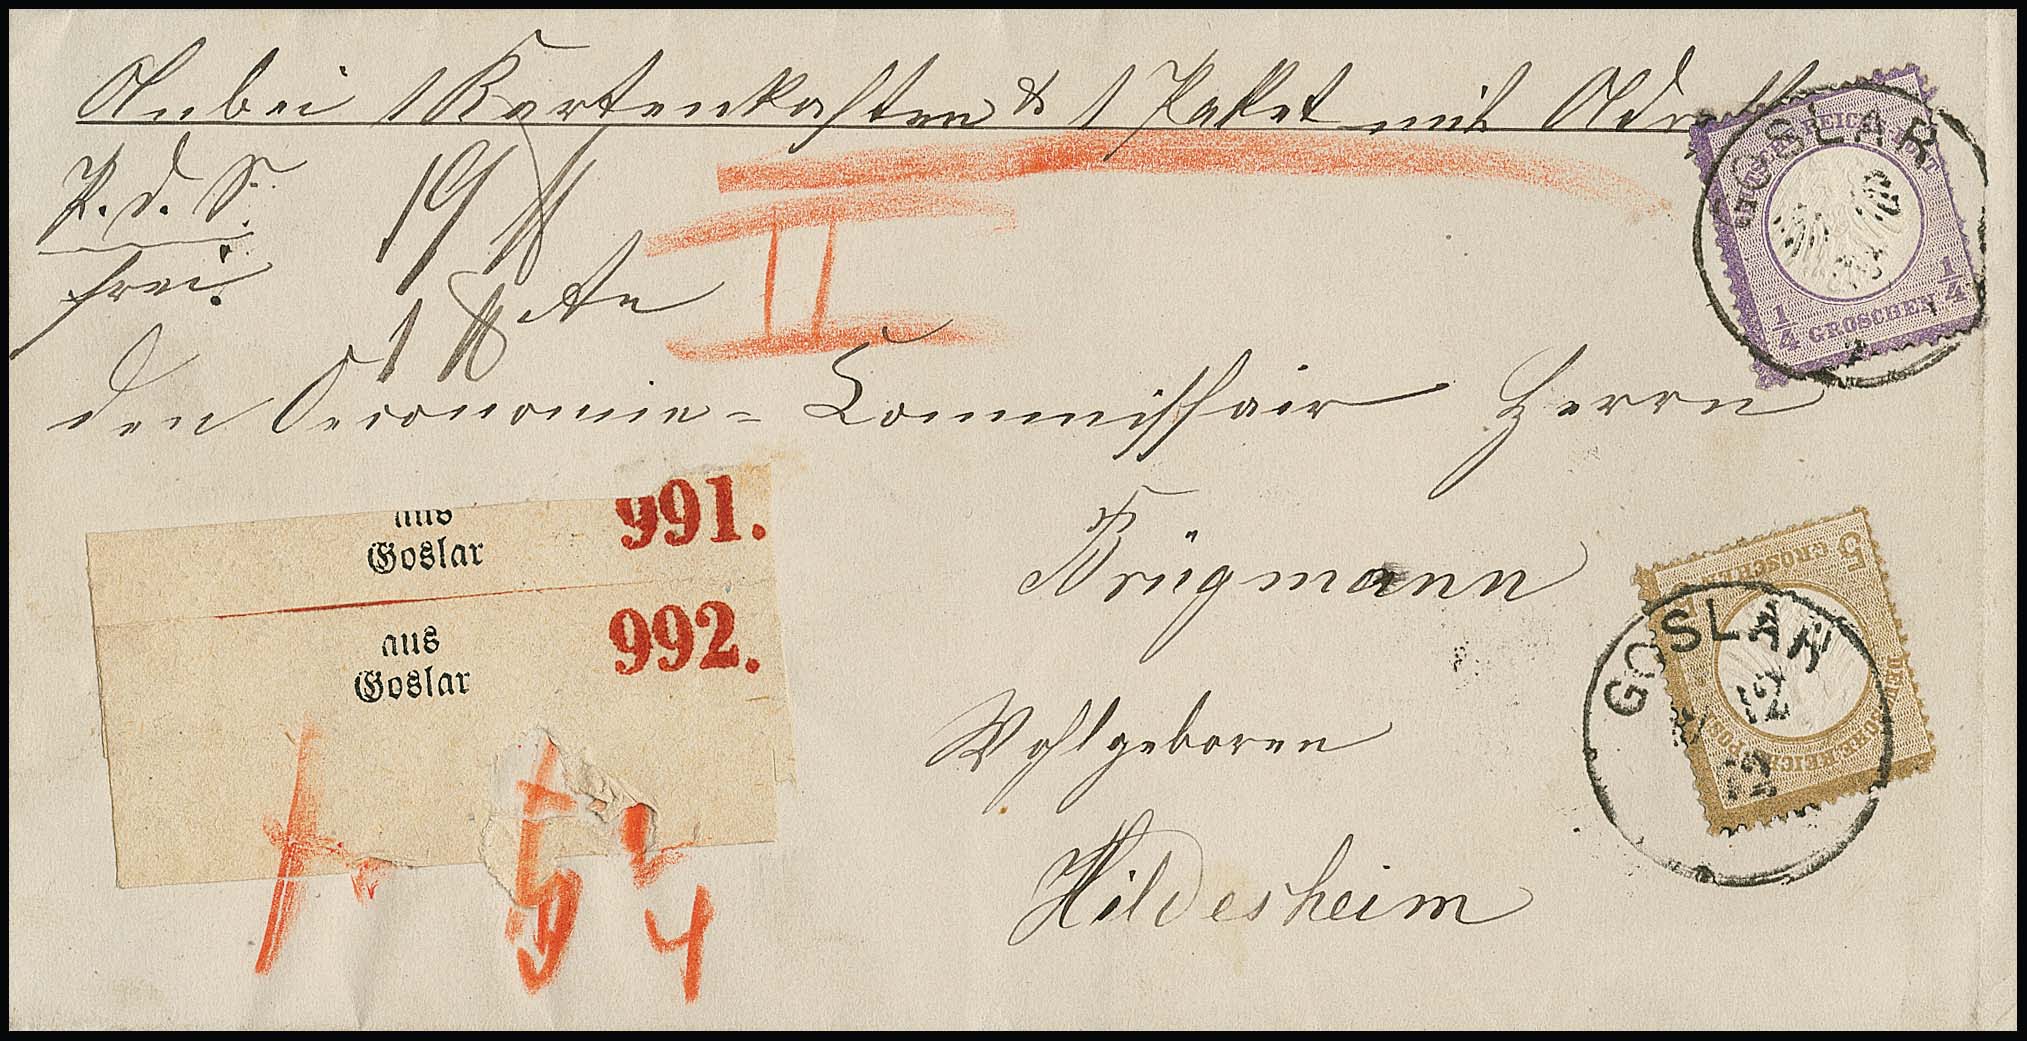 Anbei 1 Kartenkasten & 1 Paket mit Adresse
P. d. S. 19 ℔
frei. 1 8
den Oeconomie-Commissair Herrn
Brügmann
Wohlgeboren
Hildesheim
GOSLAR
DEUTSCHE REICHS-POST
1/4 GROSCHEN 1/4
aus
Goslar
991.
aus
Goslar
992.
II
5 1/4
GOSLAR
12
5 GROSCHEN 5
DEUTSCHE REICHS-POST